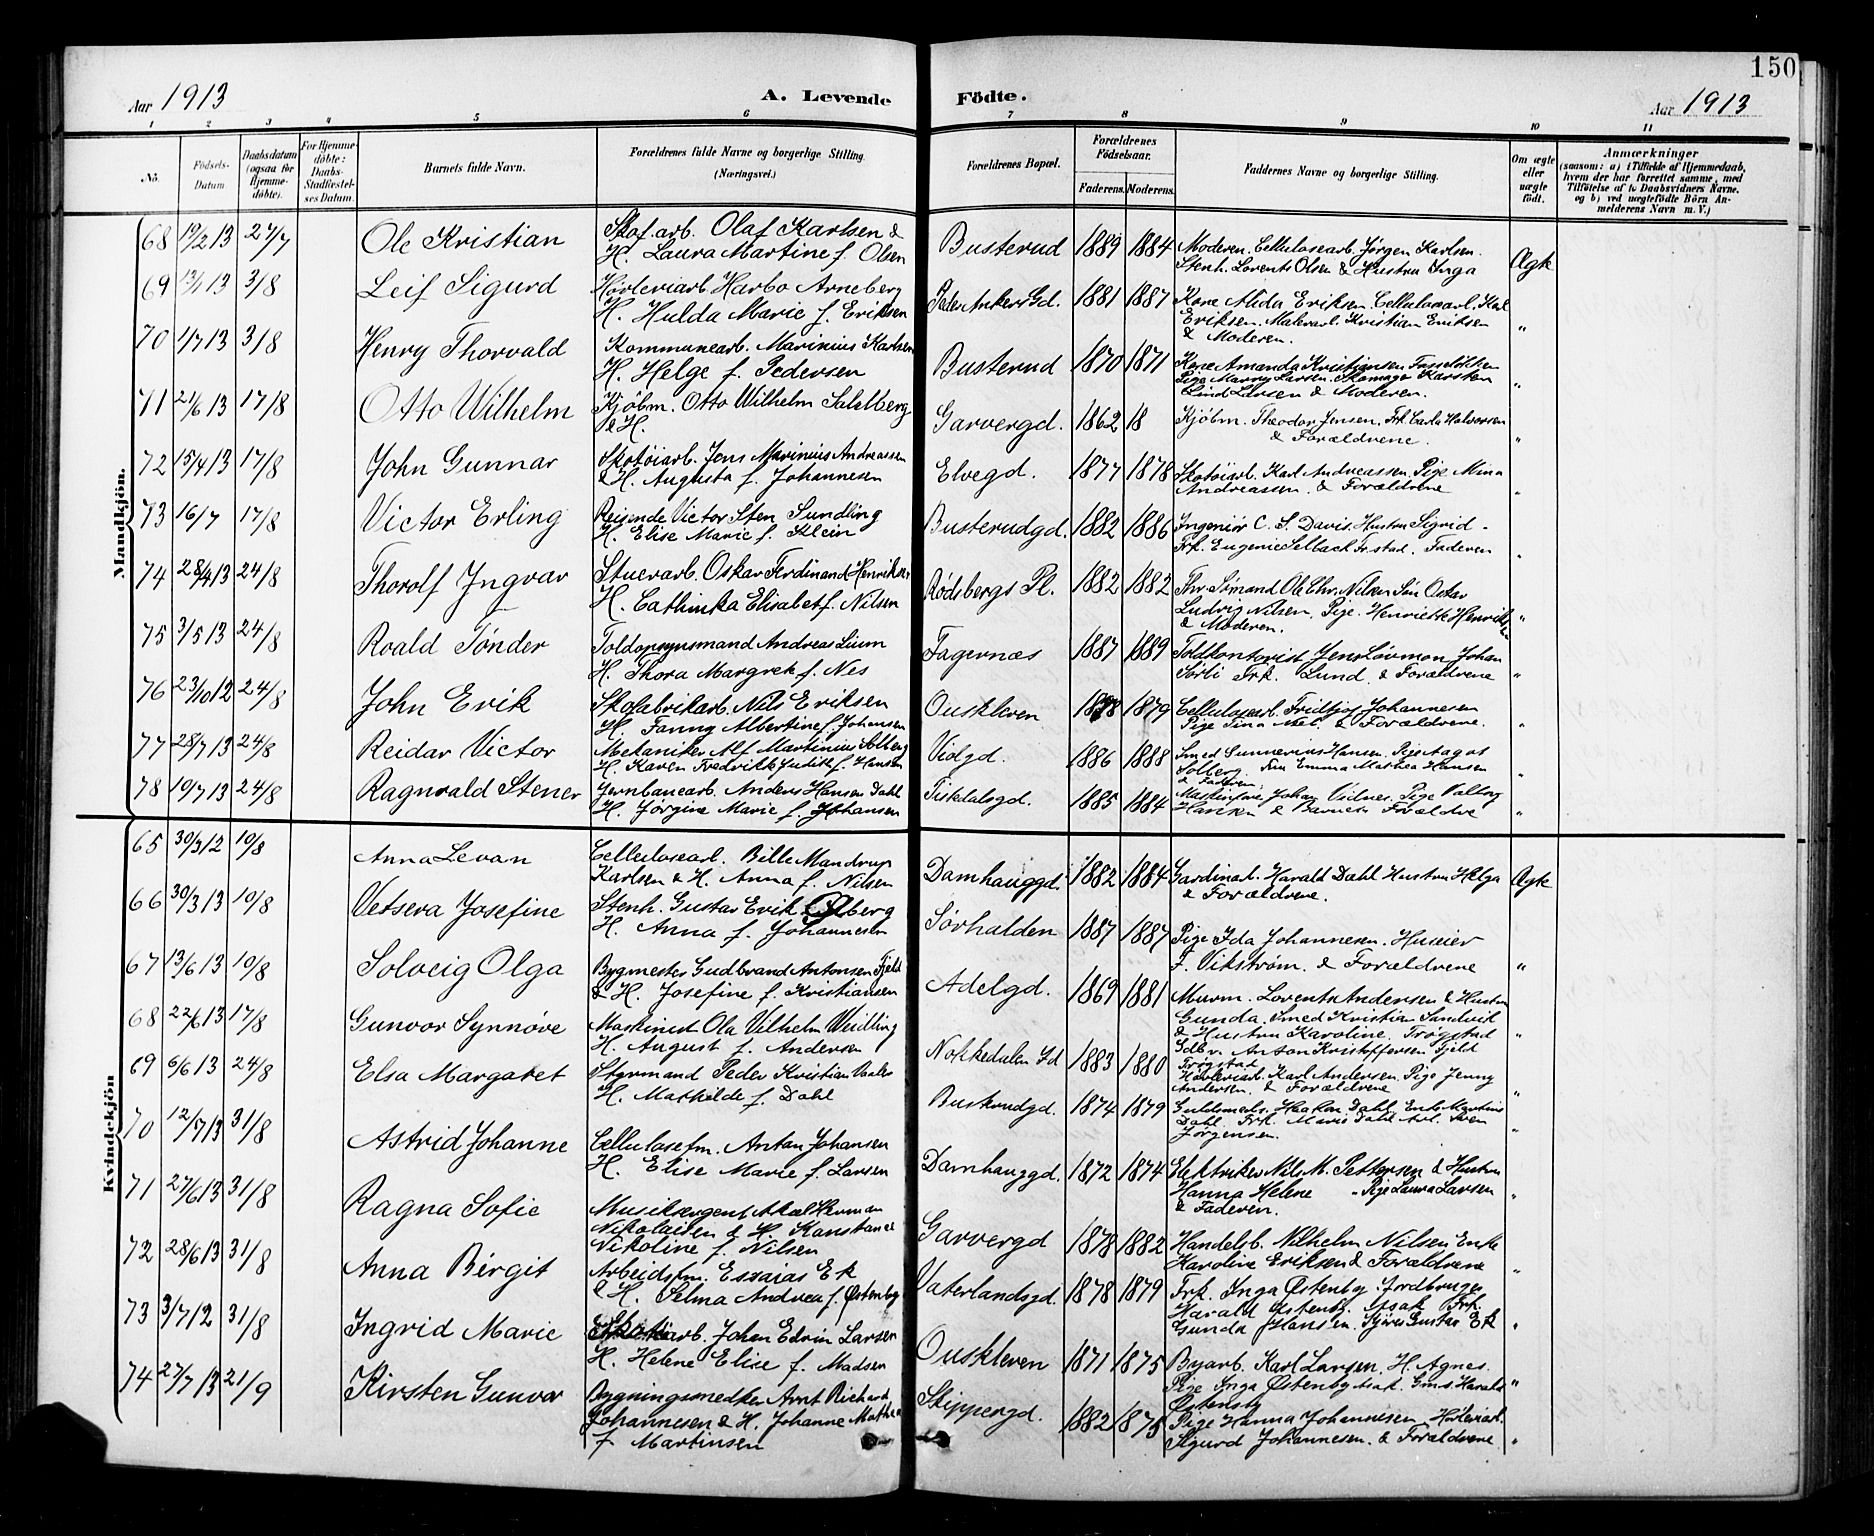 150
Aar 1913
A. Levende Födte.
Aar 1913
1 2 3 4 5 6 7 8 9 10 11
No.
Födsels-Datum
Daabsdatum (ogsaa for Hjemme-döbte).
For Hjemme-döbte: Daabs-Stadfæstel-ses Datum.
Barnets fulde Navn.
Forældrenes fulde Navne og borgerlige Stilling. (Næringsvei.)
Forældrenes Bopæl.
Forældrenes Födselsaar.
Faderens. Moderens.
Faddernes Navne og borgerlige Stilling.
Om ægte eller uægte födt.
Anmærkninger
(saasom: a) i Tilfælde af Hjemmedaab,
hvem der har forrettet samme, med
Tilföielse af to Daabsvidners Navne.
og b) ved uægtefödte Börn An-
melderens Navn m. V.)
Mandkjön.
68 19/2 13 27/7 Ole Kristian
Skofarb. Olaf Karlsen &
H. Laura Martine f. Olsen
Busterud 1889 1884
Moderen. Cellulosearb. Jørgen Karlsen.
Stenh. Lorents Olsen & Hustru Inga
Ægte
69 13/1 13 3/8 Leif Sigurd
Høvleriarb. Harbo Arneberg
H. Hulda Marie f. Eriksen
Peder Ankers Gd. 1881 1887
Kone Alida Eriksen. Cellulosearb. Karl
Eriksen. Malerarb. Kristian Eriksen
& Moderen.
"
70 1/7 13 3/8 Henry Thorvald
Kommunearb. Marinius Karlsen
H. Helge f. Pedersen
Busterud 1870 1871
Kone Amanda Kristiansen
Pige Marry Larsen. Skomager Karsten
Lind Larsen & Moderen.
"
71 21/6 13 17/8 Otto Wilhelm
Kjøbm. Otto Wilhelm Salelberg
& H.
Garvergd. 1862 18
Kjøbm. Theodor Jensen. Frk. Carla Halvorsen
& Forældrene.
"
72 15/4 13 17/8 John Gunnar
Skotøiarb. Jens Marinius Andreassen
& H. Augusta f. Johannesen
Elvegd. 1877 1878
Skotøiarb. Karl Andreassen. Pige Mina
Andreassen. & Forældrene
"
73 16/7 17/8 Victor Erling
Reisende Victor Sten Sundling
H. Elise Marie f. Klein
Busterudgd. 1882 1886
Ingeniør C. S. Davis. Hustru Sigrid
Frk. Eugenie Selbach Fr.stad. Faderen
"
74 28/4 13 24/8 Thorolf Ingvar
Stuerarb. Oskar Ferdinand Henriksen
H. Cathinka Elisabet f. Nilsen
Rødsbergs Pl. 1882 1882
Fhv. Sømand Ole Chr. Nilsen Søn Oskar
Ludvig Nilsen. Pige. Henriette Henriksen
& Moderen.
"
75 3/5 13 24/8 Roald Tønder
Toldopsynsmand Andreas Lium
H. Thora Margrete f. Nes
Fagernæs 1887 1889
Toldkontorist Jens Løvmon Johan
Sørli Frk. Lund. & Forældrene
"
76 23/10 12 24/8 John Erik
Skofabrikarb. Nils Eriksen
H. Fanny Albertine f. Johansen
Ouskleven 1878 1879
Cellulosearb. Fridtjof Johannesen
Pige Tina & Forældrene.
"
77 28/7 13 24/8 Reidar Victor
Mekaniker Alf Martinius Solberg
H. Karen Fredrikke Judith f. Hansen
Violgd. 1886 1888
Smed Gunnerius Hansen. Pige Aagot
Solberg. Fru Emma Mathea Hansen
& Faderen.
"
78 19/7 13 24/8 Ragnvald Stener
Jernbanearb. Anders Hansen Dahl
H. Jørgine Marie f. Johansen
Fiskedalsgd. 1885 1884
Maskinfører Johan Vidnes. Pige Valborg
Hansen & Barnets Forældre
"
Kvindekjön
65 30/3 12 10/8 Anna Levan
Cellulosearb. Bille Mandrup
Karlsen & H. Anna f. Nilsen
Damhauggd. 1882 1884
Gardinarb. Harald Dahl Hustru Helga
& Forældrene.
Ægte
66 30/3 13 10/8 Vetsera Josefine
Stenh. Gustav Erik Øberg
H. Anna f. Johannesen
Sørhalden 1887 1887
Pige Ida Johannesen. Huseier
F. Vikstrøm. & Forældrene
"
67 13/6 13 10/8 Solveig Olga
Bygmester Gudbrand Antonsen Fjeld
& H. Josefine f. Kristiansen
Adelgd. 1869 1881
Murm. Lorents Andersen & Hustru
Gunda. Smed Kristian Sandvik
& Hustru Karoline. Trøgstad
Gdbr. Anton Kristoffersen Fjeld
Trøgstad
"
68 22/6 13 17/8 Gunvor Synnøve
Maskinist Ola Vilhelm Weidling
H. August f. Andersen
Nofkedalen Gd 1883 1880
Høvleriarb. Karl Andersen. Pige Jenny
Andersen. & Forældrene
"
69 6/6 13 24/8 Elsa Margaret
Styrmand Peder Kristian Vaaler
H. Mathilde f. Dahl
Buskrudgd. 1874 1879
Guldsmeds. Haakon Dahl. Enke Martine
Dahl. Frk. Marie Dahl Arb. Sven
Jørgensen.
"
70 12/7 13 31/8 Astrid Johanne
Cellulosefm. Anton Johansen
H. Elise Marie f. Larsen
Damhauggd. 1872 1874
Elektriker Nils M. Pettersen & Hustru
Hanna Helene. Pige Laura Larsen
& Faderen.
"
71 27/6 13 31/8 Ragna Sofie
Musiksergent Aksel Herman
Nikolaisen & H. Konstance
Nikoline f. Nilsen
Garvergd 1878 1882
Handelsb. Vilhelm Nilsen Enke
Karoline Eriksen & Forældrene
"
72 28/6 13 31/8 Anna Birgit
Arbeidsfm. Essaias Ek
& H. Selma Andrea f. Østenby
Vaterlandsgd. 1878 1879
Frk. Inga Østenby. Jordbruger
Harald Østenby. Isak Frk.
Gunda Hansen. Gustav Ek
"
73 3/7 12 31/8 Ingrid Marie
Skotøiarb. Johan Edvin Larsen
H. Helene Elise f. Madsen
Ouskleven 1871 1875
Byarb. Karl Larsen. H. Agnes.
Pige Inga Østenby Isak. Gms. Harald
Østensby
"
74 27/7 13 21/9 Kirsten Gunvor
Bygningssnedker Arnt Richard
Johannesen & H. Johanne Mathea
f. Martinsen
Skippergd. 1882 1875
Pige Hanna Johannesen Høvleriarb.
Sigurd Johannesen. & Forældrene
"